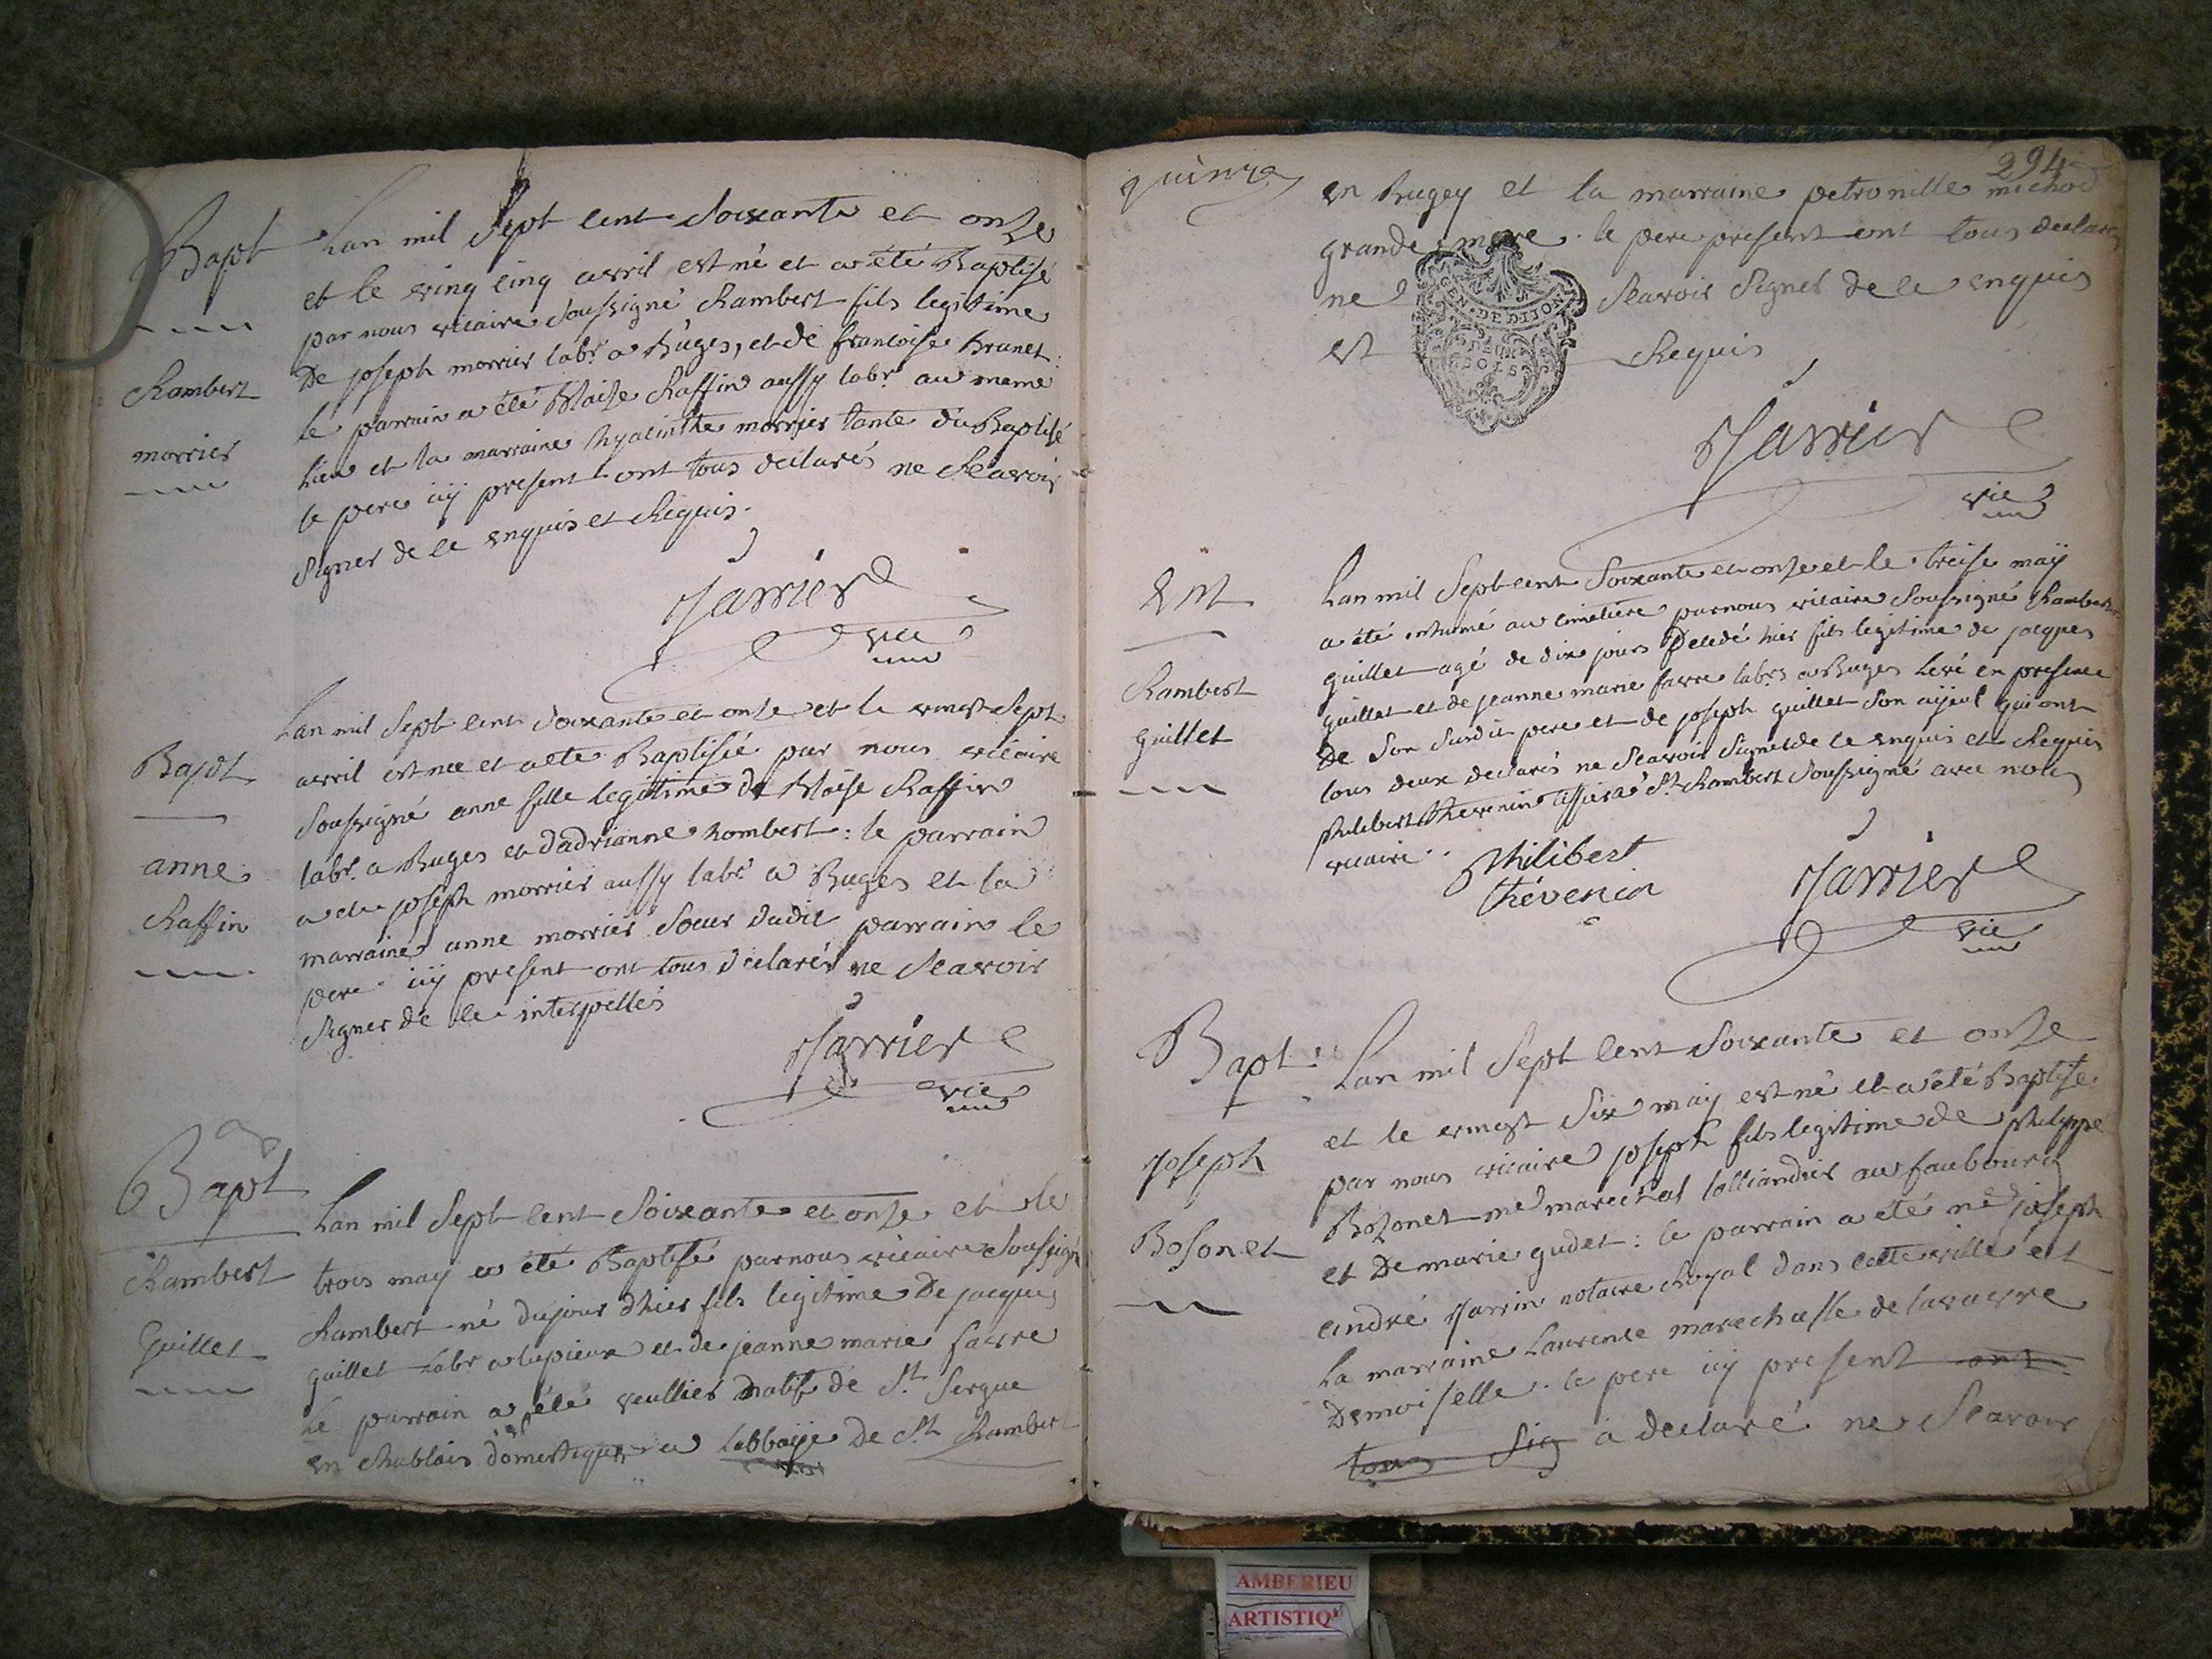 Bapt
Rambert
morrier
Lan mil Sept cent Soixante et onze
et le ving cinq avril est né et a été Baptisé
par nous vicaire Soussigné Rambert fils legitime
De joseph morrier labr. a Buges, et de francoise Brunet:
le parrain a été Blaize Raffin aussy labr. au meme
Lieu et la marraine hyacinthe morrier tante du Baptisé
le pere icÿ present ont tous declarés ne Scavoir
Signer de ce enquis et Requis.
Jarrier
vic
Bapt
anne
Raffin
Lan mil Sept cent Soixante et onze et le vingt Sept
avril est née et a ete Baptisée par nous vicaire
Soussigné anne fille legitime de Blaise Raffin
labr. a Buges et dadrianne hombert: le parrain
a ete joseph morrier aussy labr. a Buges et la
marraine anne morrier Soeur dudit parrain le
pere icÿ present ont tous declarés ne Scavoir
Signer de ce interpellés
Jarrier
vic
Bapt
Rambert
Guillet
Lan mil Sept cent Soixante et onze et le
trois may a été Baptisé par nous vicaire Soussigné
Rambert né du jour dhier fils legitime De jacques
guillet Labr a lupieux et de jeanne marie favre
Le parrain a été veullier natif de St. Sergue
en Chablais domestique a Labbaÿe de St. Rambert
quinze
294
en Bugey et la marraine petronille michod
grande mere. le pere present ont tous declarés
ne Scavoir Signer de ce enquis
et Requis
GEN. DE DIJON
DEUX
SOLS
Jarrier
vic
Ent
Rambert
guillet
Lan mil Sept cent Soixante et onze et le treise maÿ
a été inhumé au cimetiere par nous vicaire Soussigné Rambert
guillet agé de dix jours Decedé hier fils legitime de jacques
guillet et de jeanne marie favre labrs a Buges Levé en presence
De Son Susdit pere et de joseph guillet Son aÿeul qui ont
tous deux declarés ne Scavoir Signer de ce enquis et Requis
philibert thevenin a St. Rambert Soussigné avec nous
vicaire.
Philibert
thévenin
Jarrier
vic
Bapt
Joseph
Bosonet
Lan mil Sept cent Soixante et onze
et le vingt Six maÿ est né et a été Baptisé
par nous vicaire joseph fils legitime de philyppe
Bozonet me marechal talliandier au faubourg
et De marie gudet: le parrain a été me joseph
andré Jarrin notaire Royal dans cette ville et
La marraine Laurence marechalle de lavavre
Demoiselle. le pere icÿ present ont
tous Sig a declaré ne Scavoir
AMBERIEU
ARTISTIQ